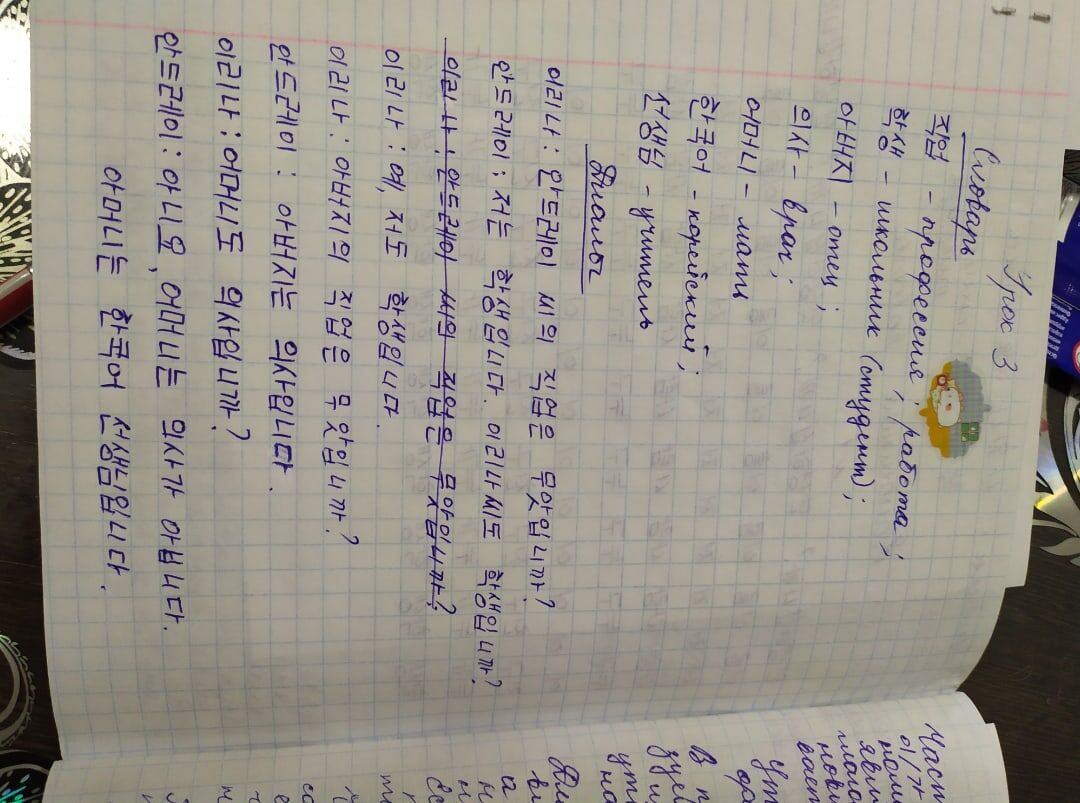 Урок 3
Словарь
직업 - профессия; работа;
학생 - школьник (студент);
아버지 - отец;
의사 - врач;
어머니 - мать
한국어 - корейский;
선생님 - учитель
Диалог
이리나: 안드레이 씨의 직업은 무엇입니까?
안드레이: 저는 학생입니다. 이리나씨도 학생입니까?
이리나: 안드레이 씨의 직업은 무엇입니까?
이리나: 예, 저도 학생입니다.
이리나: 아버지의 직업은 무엇입니까?
안드레이: 아버지는 의사입니다.
이리나: 어머니도 의사입니까?
안드레이: 아니요, 어머니는 의사가 아닙니다.
어머니는 한국어 선생님입니다.